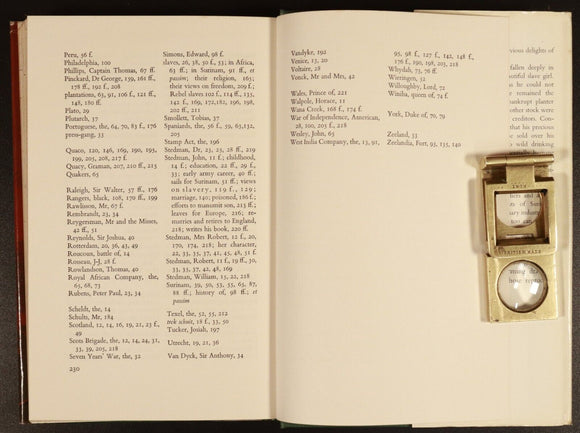 Peru, 36 f.
Philadelphia, 100
Phillips, Captain Thomas, 67 ff.
Pinckard, Dr George, 159, 161 ff.,
178 ff., 192 f., 208
plantations, 63, 97, 106 f., 121 ff.,
148, 180 ff.
Plato, 29
Plutarch, 37
Portuguese, the, 64, 70, 83 f., 176
press-gang, 33
Quaco, 120, 146, 169, 190, 195,
199, 205, 208, 217 f.
Quacy, Graman, 207, 210 ff., 215
Quakers, 65
Raleigh, Sir Walter, 57 ff., 176
Rangers, black, 108, 170 ff., 199
Rawlisson, Mr, 67 f.
Rembrandt, 23, 34
Reygersman, Mr and the Misses,
42 ff., 51
Reynolds, Sir Joshua, 40
Rotterdam, 20, 36, 43, 49
Roucoux, battle of, 14
Rousseau, J-J, 28 f.
Rowlandson, Thomas, 40
Royal African Company, the,
65, 68, 73
Rubens, Peter Paul, 23, 34
Scheldt, the, 14
Schults, Mr, 184
Scotland, 12, 14, 16, 19, 21, 23 f.,
49
Scots Brigade, the, 12, 14, 24, 31,
33, 39, 205, 218
Seven Years' War, the, 32
230
Simons, Edward, 98 f.
slaves, 26, 38, 50 f., 53; in Africa,
63 ff.; in Surinam, 91 ff., et
passim; their religion, 163;
their views on freedom, 209 f.;
Rebel slaves 102 f., 114 ff., 135,
142 f., 169, 172, 182, 196, 198,
202 ff., 211
Smollett, Tobias, 37
Spaniards, the, 56 f., 59, 65, 132,
205
Stamp Act, the, 196
Stedman, Dr, 23, 25, 28 ff., 219
Stedman, John, 11 f.; childhood,
14 f.; education, 22 ff., 29 f.,
33; early army career, 40 ff.;
sails for Surinam, 51 ff.; views
on slavery, 119 f., 129;
marriage, 140; poisoned, 186 f.;
efforts to transmit son, 213 ff.;
leaves for Europe, 216; re-
marries and retires to England,
218; writes his book, 220 ff.
Stedman, Mrs Robert, 12 f., 20,
170, 174, 218; her character,
22, 33, 35, 37, 41, 45, 48, 51 f.
Stedman, Robert, 11 f., 19 ff., 30,
33, 35, 37, 42, 48, 169
Stedman, William, 13, 22, 218
Surinam, 39, 50, 53, 55, 65, 87,
88 ff.; history of, 98 ff.; et
passim
Texel, the, 52, 55, 212
trek schuit, 18 f., 33, 50
Tucker, Josiah, 197
Utrecht, 19, 21, 36
Van Dyck, Sir Anthony, 34
Vandyke, 192
Venice, 13, 20
Voltaire, 28
Vonck, Mr and Mrs, 42
Wales, Prince of, 221
Walpole, Horace, 11
Wana Creek, 168 f., 174
War of Independence, American,
28, 100, 203 f., 218
Wesley, John, 65
West India Company, the, 13, 91,
95, 98 f., 127 f., 142, 148 f.,
176 f., 190, 198, 205, 218
Whydah, 75, 76 ff.
Wieringen, 52
Willoughby, Lord, 72
Winiha, queen of, 74 f.
York, Duke of, 70, 79
Zeeland, 33
Zeelandia, Fort, 93, 135, 140
vious delights of
fallen deeply in
outiful slave girl.
as he could not
he remained the
bankrupt planter
other stock were
creditors. Con-
that his precious
be sold over his
wild drinking
BRITISH MADE